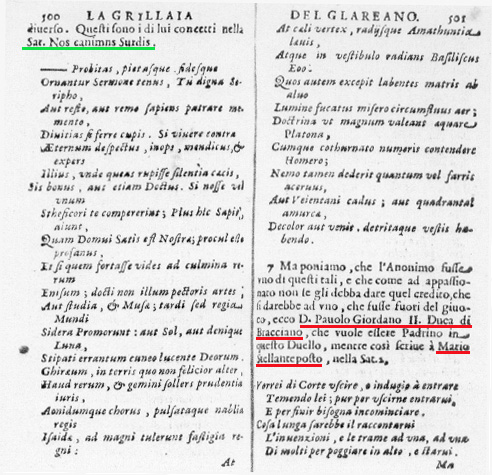 500 LA GRILLAIA
diverso. Questi sono i di lui concetti nella
Sat. Nos canimus Surdis.
—— Probitas, pietasque fidesque
Ornantur Sermone tenus, Tu digna Se-
ripho,
Aut reste, aut remo sapiens patrare me-
mento,
Divitias si ferre cupis. Si vivere contra
Æternum despectus, inops, mendicus, &
expers
Illius, vnde queas rupisse silentia cæcis,
Sis bonus, aut etiam Doctus. Si nosse vel
vnum
Sthesicori te compereris; Plus hic Sapis,
aiunt,
Quam Domui Satis est Nostra; procul este
profanus.
Et si quem fortasse vides ad culmina re-
rum
Enisum; docti non illum pectoris artes,
Aut studia, & Musæ; tardi sed regia
Mundi
Sidera Promorunt: aut Sol, aut denique
Luna,
Stipati errantum cuneo lucente Deorum.
Ghiræum, in terris quo non felicior alter,
Haud rerum, & gemini sollers prudentia
iuris,
Aonidumque chorus, pulsataque nablia
regis
Isaidæ, ad magni tulerunt fastigia re-
gni:
At
DEL GLAREANO. 501
At cali vertex, radijsque Amathuntia
lauis,
Atque in vestibulo radians Basiliscus
Eoo.
Quos autem excepit labentes matris ab
aluo
Lumine fucatus misero circumfluus aer;
Doctrina vt magnum valeant æquare
Platona,
Cumque cothurnato numeris contendere
Homero;
Nemo tamen dederit quantum vel farris
aceruus,
Aut Veientani cadus; aut quadrantal
amurca,
Decolor aut venit. detritaque vestis ha-
bendo.
7 Ma poniamo, che l'Anonimo fusse
vno di questi tali, e che come ad appassio-
nato non se gli debba dare quel credito, che
si darebbe ad vno, che fusse fuori del giuo-
co, ecco D. Pauolo Giordano II. Duca di
Bracciano, che vuole essere Padrino in
questo Duello, mentre così scriue à Mario
Stellanteposto, nella Sat. 2.
Vorrei di Corte vscire, o indugio à entrare
Temendo lei; pur per vscirne entrarui
E per finir bisogna incominciare.
Cosa lunga sarebbe il raccontarui
L'inuenzioni, e le trame ad vna, ad vna
Di molti per poggiare in alto, e starui.
Ma